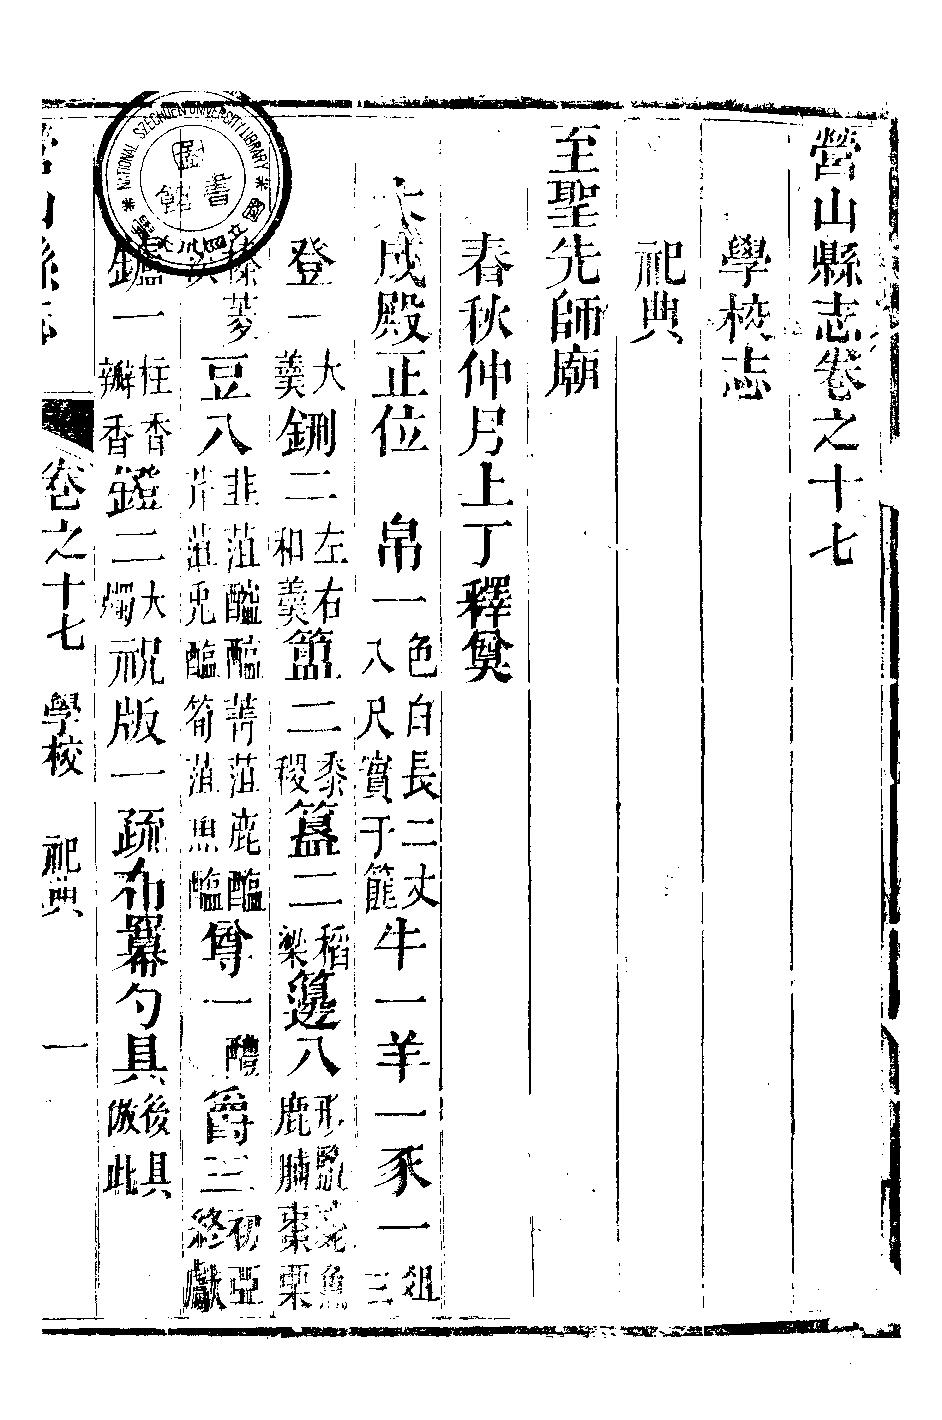 營山縣志卷之十七
學校志
祀典
至聖先師廟
春秋仲月上丁釋奠
大成殿正位 帛一色白長二丈八尺實于篚牛一羊一豕一俎三
登一大羹鉶二左右和羹簠二黍稷簋二稻粱籩八形鹽藁魚鹿脯棗栗
榛菱芡豆八韭菹醓醢菁菹鹿醢芹菹兎醢筍菹魚醢尊一醴爵三初亞終獻
鑪一柱香瓣香鐙二大燭祝版一疏布羃勺具後具倣此
營山縣志 卷之十七 學校 祀典 一
NATIONAL SZECHUEN UNIVERSITY LIBRARY
國立四川大學
圖書館